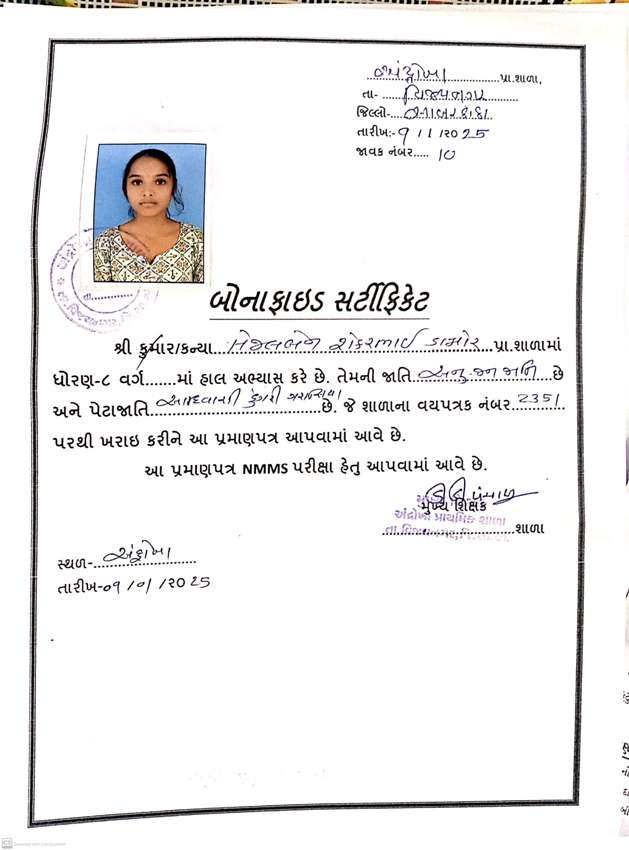 અંદ્રોખા પ્રા.શાળા,
તા- વિજયનગર
જિલ્લો- સાબરકાંઠા
તારીખ:- 9 / 1 /૨૦25
જાવક નંબર..... 10
બોનાફાઇડ સર્ટીફિકેટ
શ્રી કુમાર/કન્યા સેજલબેન શંકરભાઇ ડામોર પ્રા.શાળામાં
ધોરણ-૮ વર્ગ.......માં હાલ અભ્યાસ કરે છે. તેમની જાતિ અનુ.જન જાતિ છે
અને પેટાજાતિ આદિવાસી ડુંગરી ગરાસિયા છે. જે શાળાના વયપત્રક નંબર 2351
પરથી ખરાઇ કરીને આ પ્રમાણપત્ર આપવામાં આવે છે.
આ પ્રમાણપત્ર NMMS પરીક્ષા હેતુ આપવામાં આવે છે.
મુખ્ય શિક્ષક
અંદ્રોખા પ્રાથમિક શાળા
તા.વિજયનગર, જિ.
શાળા
સ્થળ- અંદ્રોખા
તારીખ-09 /01 /૨૦25